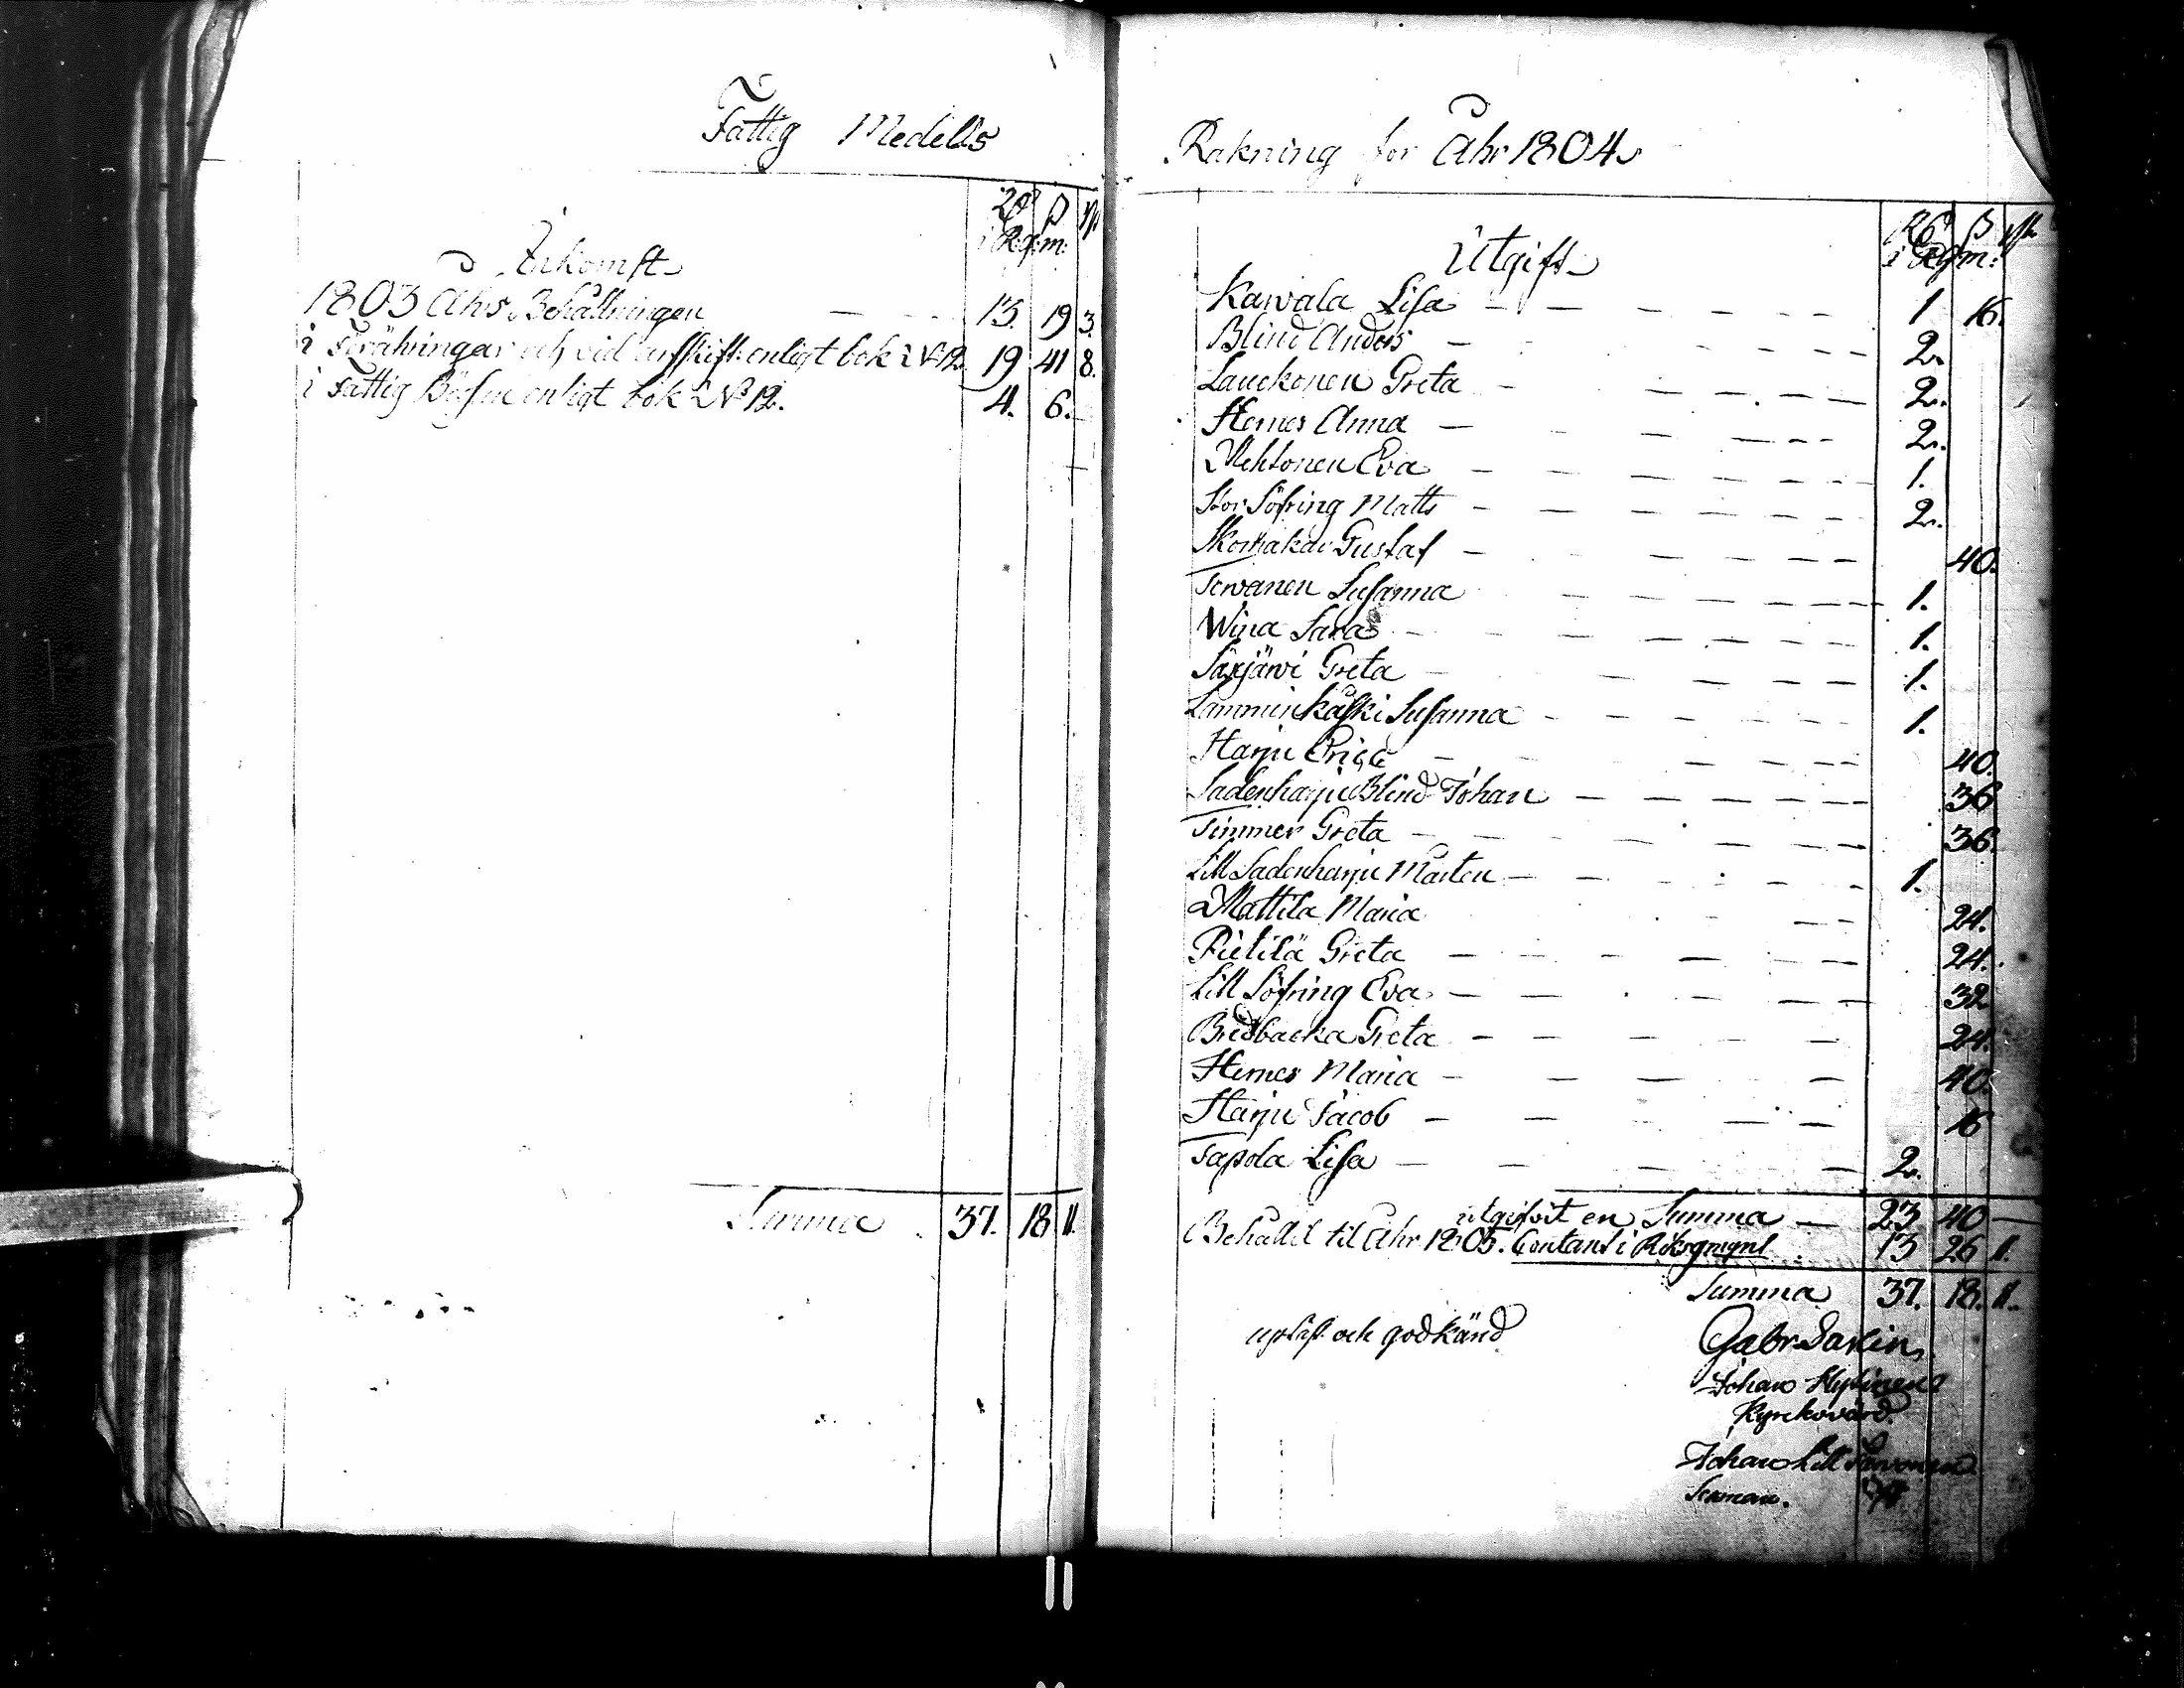 Fattig Medels
Inkomst
Rd ß rst
i Rgsm:
1803 Åhrs Behållningen 13. 19 3.
i Förähringar och vid arfskift enligt bok N:o 12. 19 41 8.
i Fattig Bössan enligt bok N:o 12. 4. 6.
Summa 37. 18 11.
Räkning för Åhr 1804
Utgift
Rd ß rst
i Rgsm:
Karvala Lisa 1 16.
Blind Anders 2.
Lauckonen Greta 2.
Hernes Anna 2.
Mehtonen Eva 1.
Stor Söfring Matts 2.
Skomakar Gustaf 40.
Tervanen Susanna 1.
Wina Sara 1.
Säxjärvi Greta 1.
Lamminkåski Susanna 1.
Harju Brita 40.
Sadenharju Blind Johan 36
Timmer Greta 36.
Lill Sadenharju Mårten 1.
Mattila Maria 24.
Pietilä Greta 24.
Lill Söfring Eva 32
Bredbacka Greta 24.
Hernes Maria 40.
Harju Jacob 16
Tapola Lisa 2.
utgifvit en Summa 23 40 —
Behålld til Åhr 1805. Contant i Riksgmynt 13 26 11.
Summa 37. 18. 11.
upläst och godkänd
Gabr
Johan
Kyrckovärd
Johan Lill
Sexman.